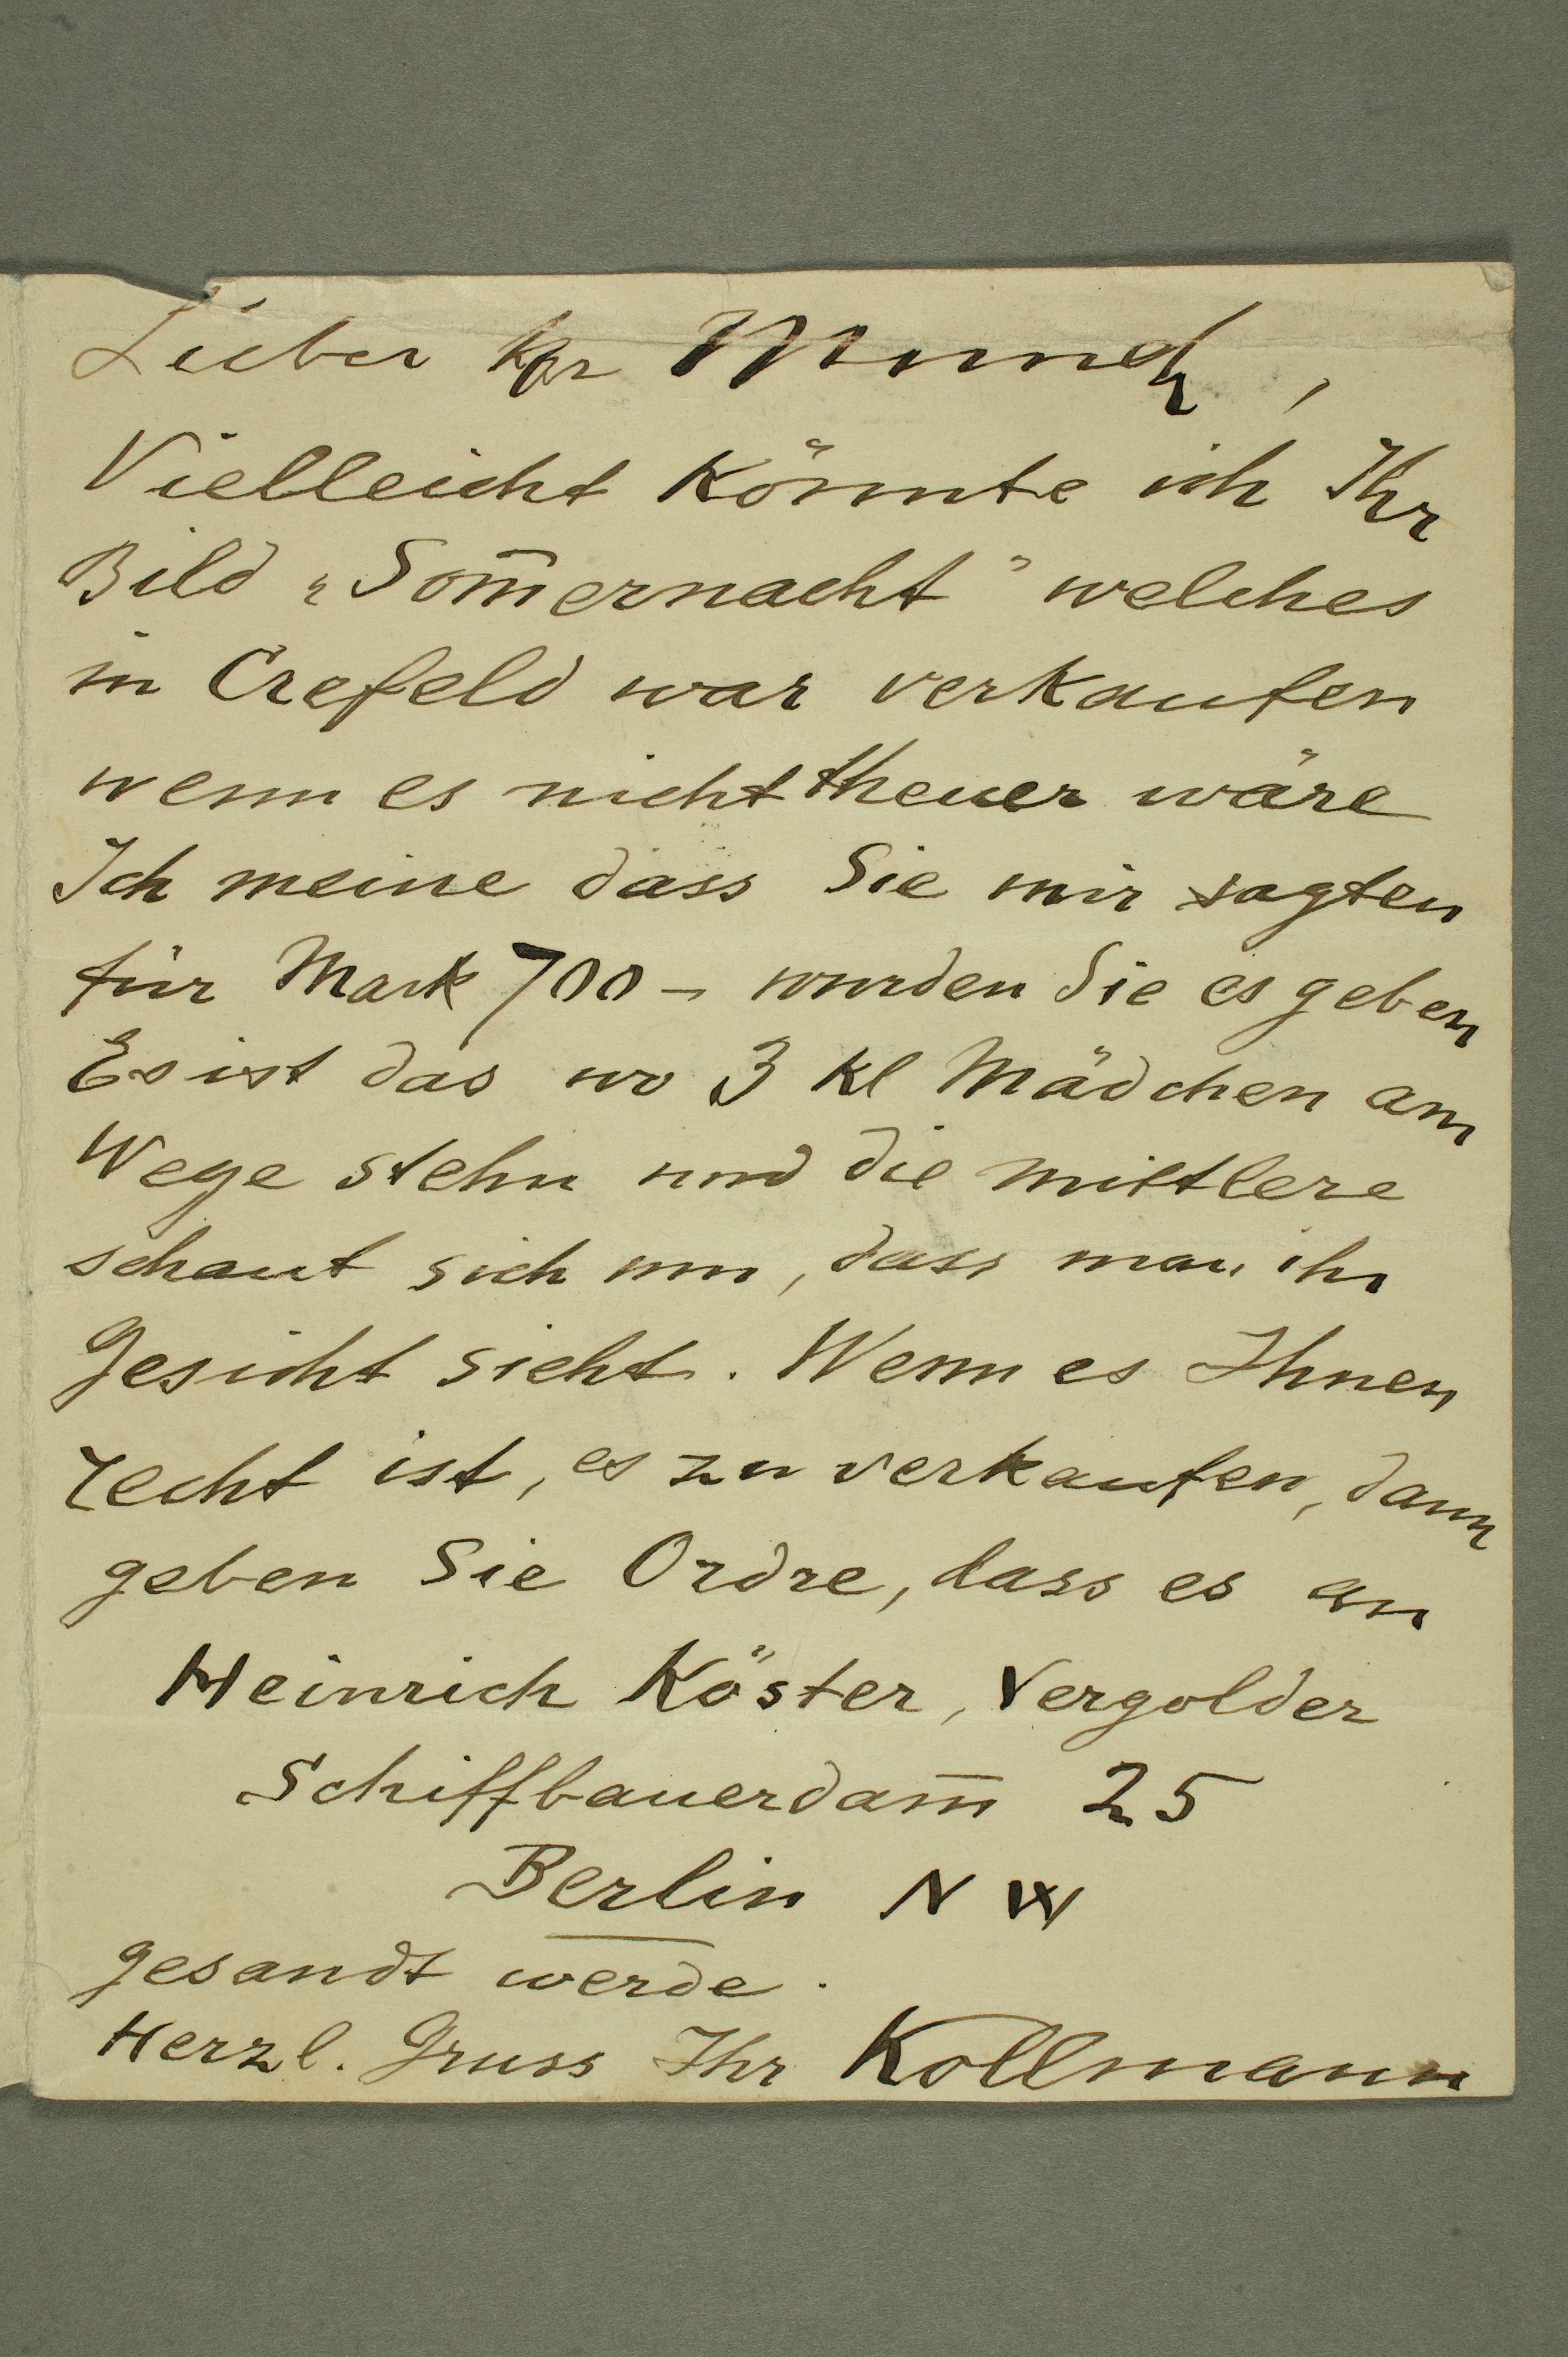 Lieber Hr Munch,
Vielleicht könnte ich Ihr
Bild „Som̅ernacht" welches
in Crefeld war verkaufen
wenn es nicht theuer wäre
Ich meine dass Sie mir sagten
für Mark 700 – wurden Sie es geben
Es ist das wo 3 kl Mädchen am
Wege stehn und die mittlere
schaut sich um, dass man ihr
Gesicht sieht. Wenn es Ihnen
recht ist, es zu verkaufen, dann
geben Sie Ordre, dass es an
Heinrich Köster, Vergolder
Schiffbauerdam̅ 25
Berlin NW
gesandt werde.
Herzl. Gruss Ihr Kollmann